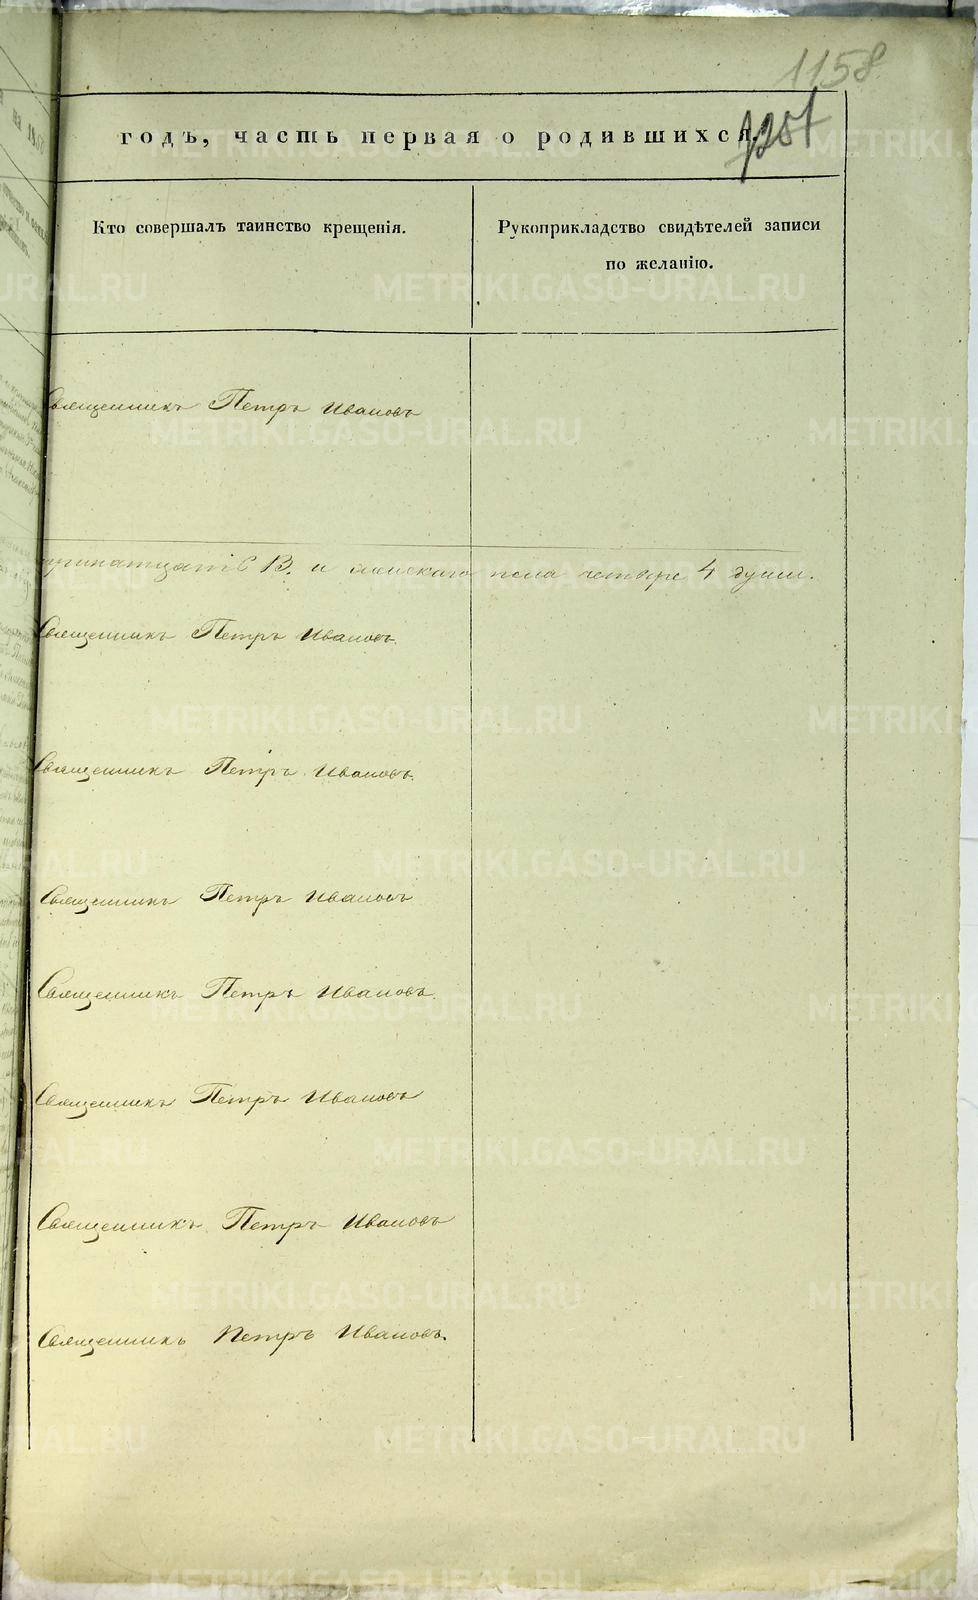 1158
годъ, часть первая о родившихся.
Кто совершалъ таинство крещенія.
Рукоприкладство свидѣтелей записи
по желанію.
Священникъ Петръ Ивановъ
13. и женскаго пола четыре 4 души.
Священникъ Петръ Ивановъ.
Священникъ Петръ Ивановъ.
Священникъ Петръ Ивановъ
Священникъ Петръ Ивановъ.
Священникъ Петръ Ивановъ
Священникъ Петръ Ивановъ
Священникъ Петръ Ивановъ.
METRIKI.GASO-URAL.RU